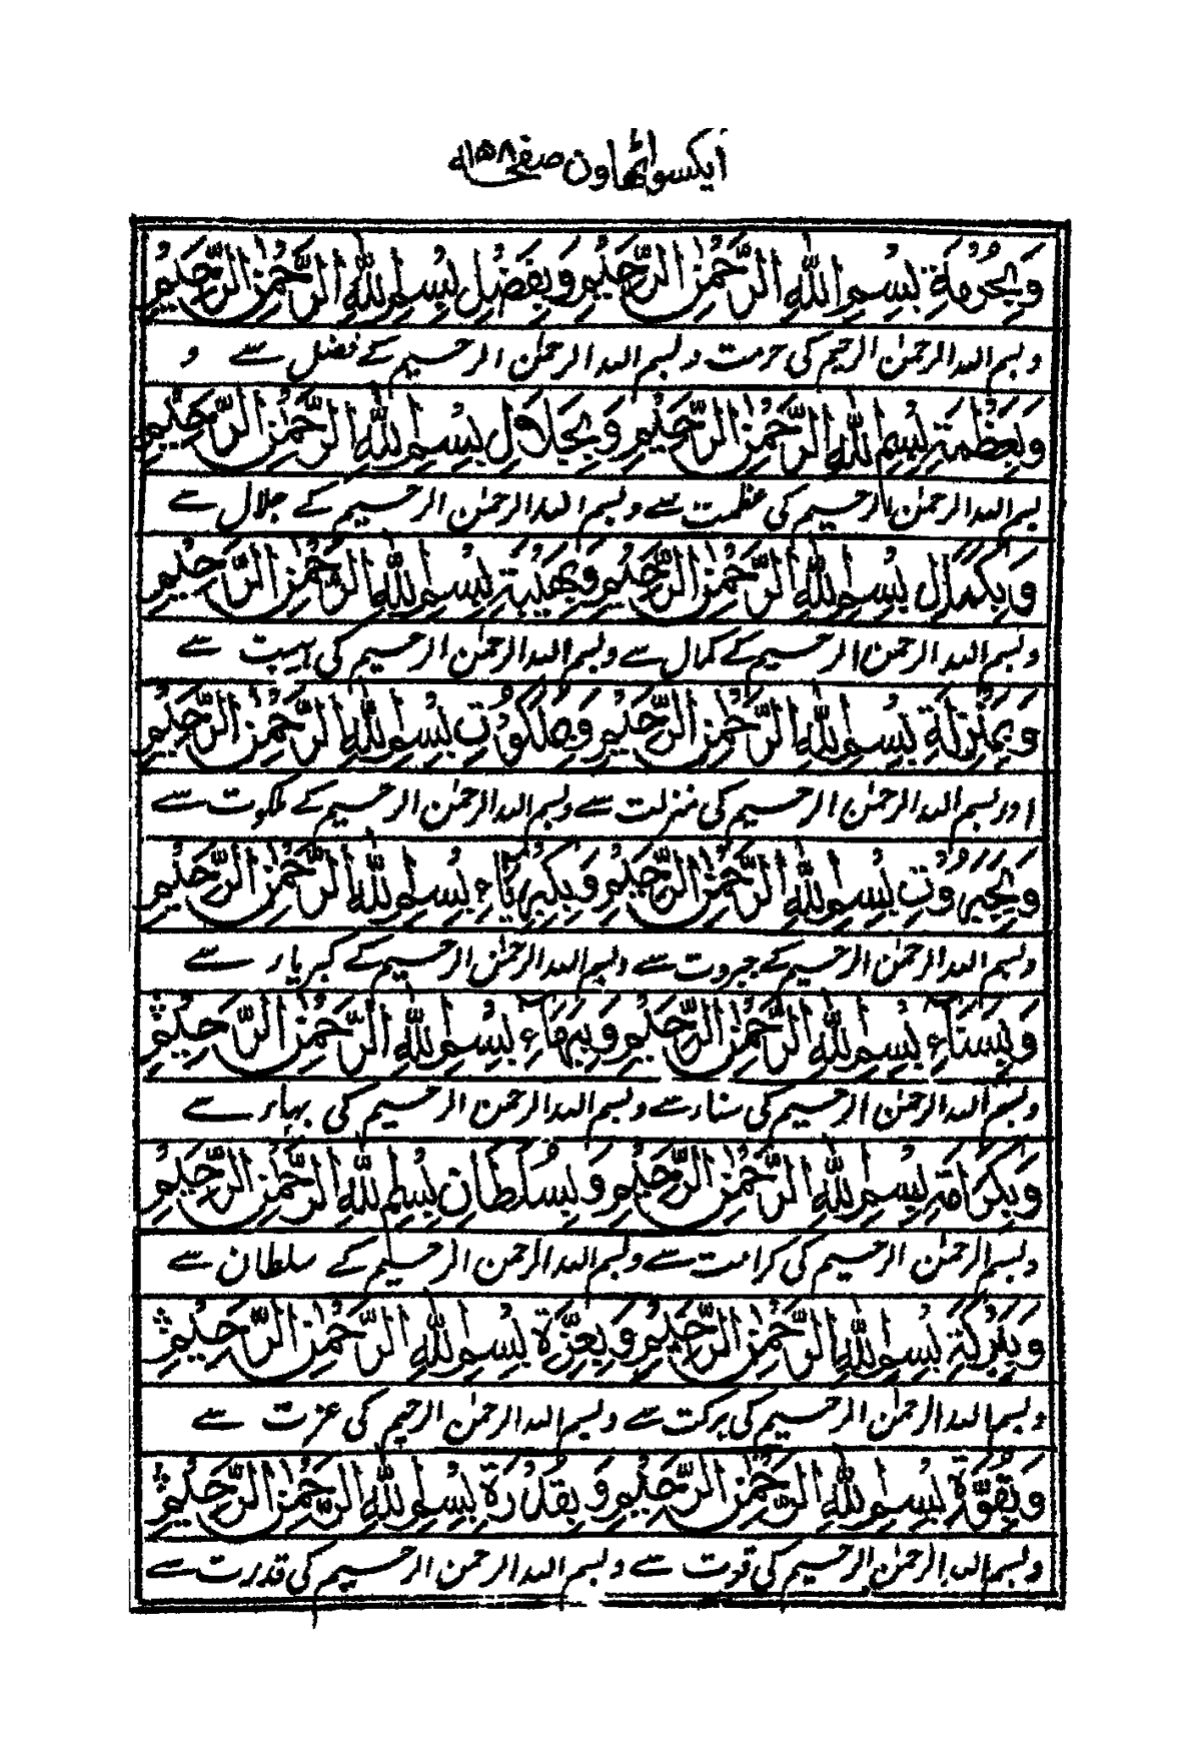 ایکسواٹھاون صفحہ ۱۵۸
وَبِحُرْمَةِ بِسْمِ اللهِ الرَّحْمٰنِ الرَّحِيْمِ وَبِفَضْلِ بِسْمِ اللهِ الرَّحْمٰنِ الرَّحِيْمِ
و بسم اللہ الرحمٰن الرحیم کی حرمت و بسم اللہ الرحمٰن الرحیم کے فضل سے و
وَبِعَظَمَةِ بِسْمِ اللهِ الرَّحْمٰنِ الرَّحِيْمِ وَبِجَلَالِ بِسْمِ اللهِ الرَّحْمٰنِ الرَّحِيْمِ
بسم اللہ الرحمٰن الرحیم کی عظمت سے و بسم اللہ الرحمٰن الرحیم کے جلال سے
وَبِكَمَالِ بِسْمِ اللهِ الرَّحْمٰنِ الرَّحِيْمِ وَبِهَيْبَةِ بِسْمِ اللهِ الرَّحْمٰنِ الرَّحِيْمِ
و بسم اللہ الرحمٰن الرحیم کے کمال سے و بسم اللہ الرحمٰن الرحیم کی ہیبت سے
وَبِمَنْزِلَةِ بِسْمِ اللهِ الرَّحْمٰنِ الرَّحِيْمِ وَمَلَكُوْتِ بِسْمِ اللهِ الرَّحْمٰنِ الرَّحِيْمِ
اور بسم اللہ الرحمٰن الرحیم کی منزلت سے و بسم اللہ الرحمٰن الرحیم کے ملکوت سے
وَبِجَبَرُوْتِ بِسْمِ اللهِ الرَّحْمٰنِ الرَّحِيْمِ وَبِكِبْرِيَاءِ بِسْمِ اللهِ الرَّحْمٰنِ الرَّحِيْمِ
و بسم اللہ الرحمٰن الرحیم کے جبروت سے و بسم اللہ الرحمٰن الرحیم کے کبریاء سے
وَبِسَنَآءِ بِسْمِ اللهِ الرَّحْمٰنِ الرَّحِيْمِ وَبِبَهَآءِ بِسْمِ اللهِ الرَّحْمٰنِ الرَّحِيْمِ
و بسم اللہ الرحمٰن الرحیم کی سناء سے و بسم اللہ الرحمن الرحیم کی بہاء سے
وَبِكَرَامَةِ بِسْمِ اللهِ الرَّحْمٰنِ الرَّحِيْمِ وَبِسُلْطَانِ بِسْمِ اللهِ الرَّحْمٰنِ الرَّحِيْمِ
و بسم الرحمٰن الرحیم کی کرامت سے و بسم اللہ الرحمن الرحیم کے سلطان سے
وَبِبَرَكَةِ بِسْمِ اللهِ الرَّحْمٰنِ الرَّحِيْمِ وَبِعِزَّةِ بِسْمِ اللهِ الرَّحْمٰنِ الرَّحِيْمِ
و بسم اللہ الرحمٰن الرحیم کی برکت سے و بسم اللہ الرحمٰن الرحیم کی عزت سے
وَبِقُوَّةِ بِسْمِ اللهِ الرَّحْمٰنِ الرَّحِيْمِ وَبِقُدْرَةِ بِسْمِ اللهِ الرَّحْمٰنِ الرَّحِيْمِ
و بسم اللہ الرحمٰن الرحیم کی قوت سے و بسم اللہ الرحمن الرحیم کی قدرت سے